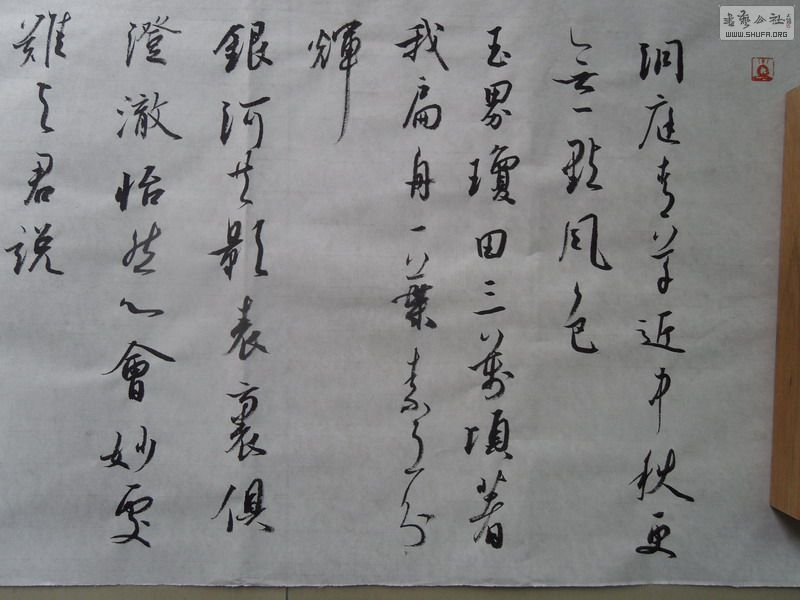 洞庭青草近中秋更
無一點風色
玉界瓊田三萬頃著
我扁舟一葉素月分
輝
銀河共影表裏俱
澄澈怡然心會妙處
難与君説
書藝公社
WWW.SHUFA.ORG